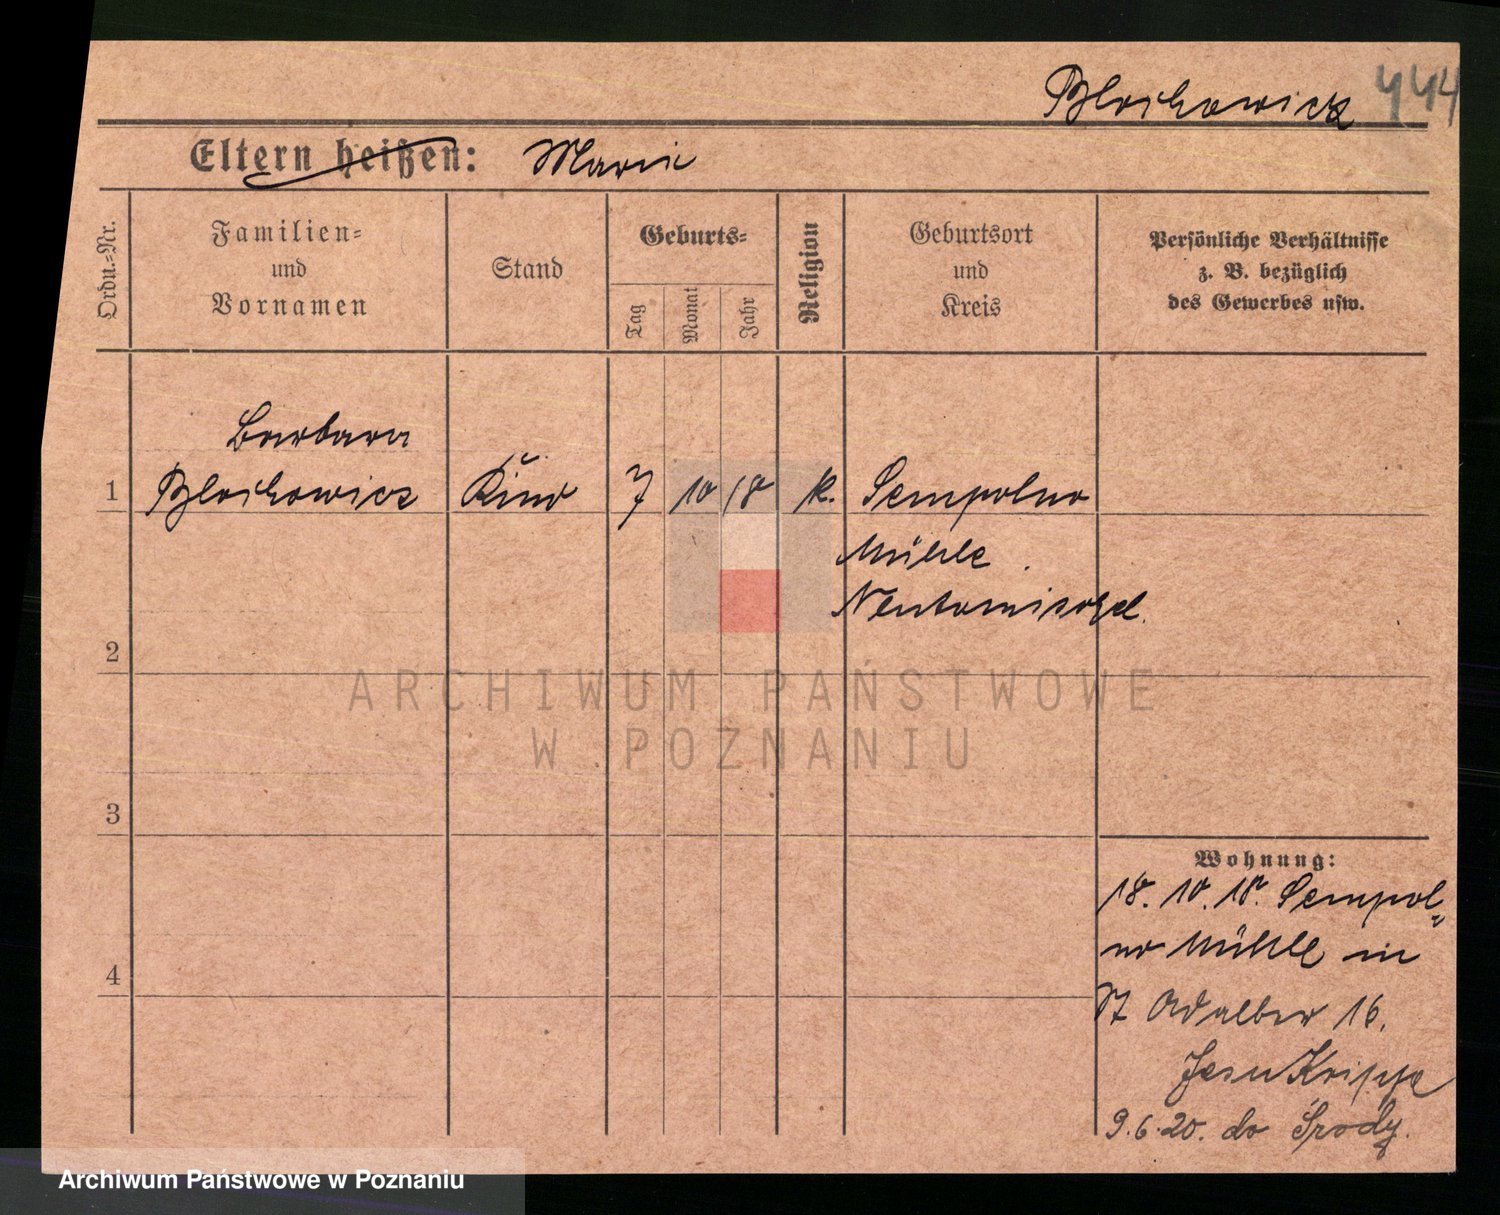 Bloikowicz 444
Eltern heißen: Marie
Ordn.-Nr.
Familien-
und
Vornamen
Stand
Geburts-
Tag
Monat
Jahr
Religion
Geburtsort
und
Kreis
Persönliche Verhältnisse
z. B. bezüglich
des Gewerbes usw.
Barbara
1 Bloikowicz Kind 7 10 18 k. Sempolno
Mühle
Neutomischel.
2
ARCHIWUM PAŃSTWOWE
W POZNANIU
3
Wohnung:
18. 10. 18. Sempol-
no Mühle in
4
St Adalber 16.
Jesu Krippe
9.6.20. do Środy.
Archiwum Państwowe w Poznaniu